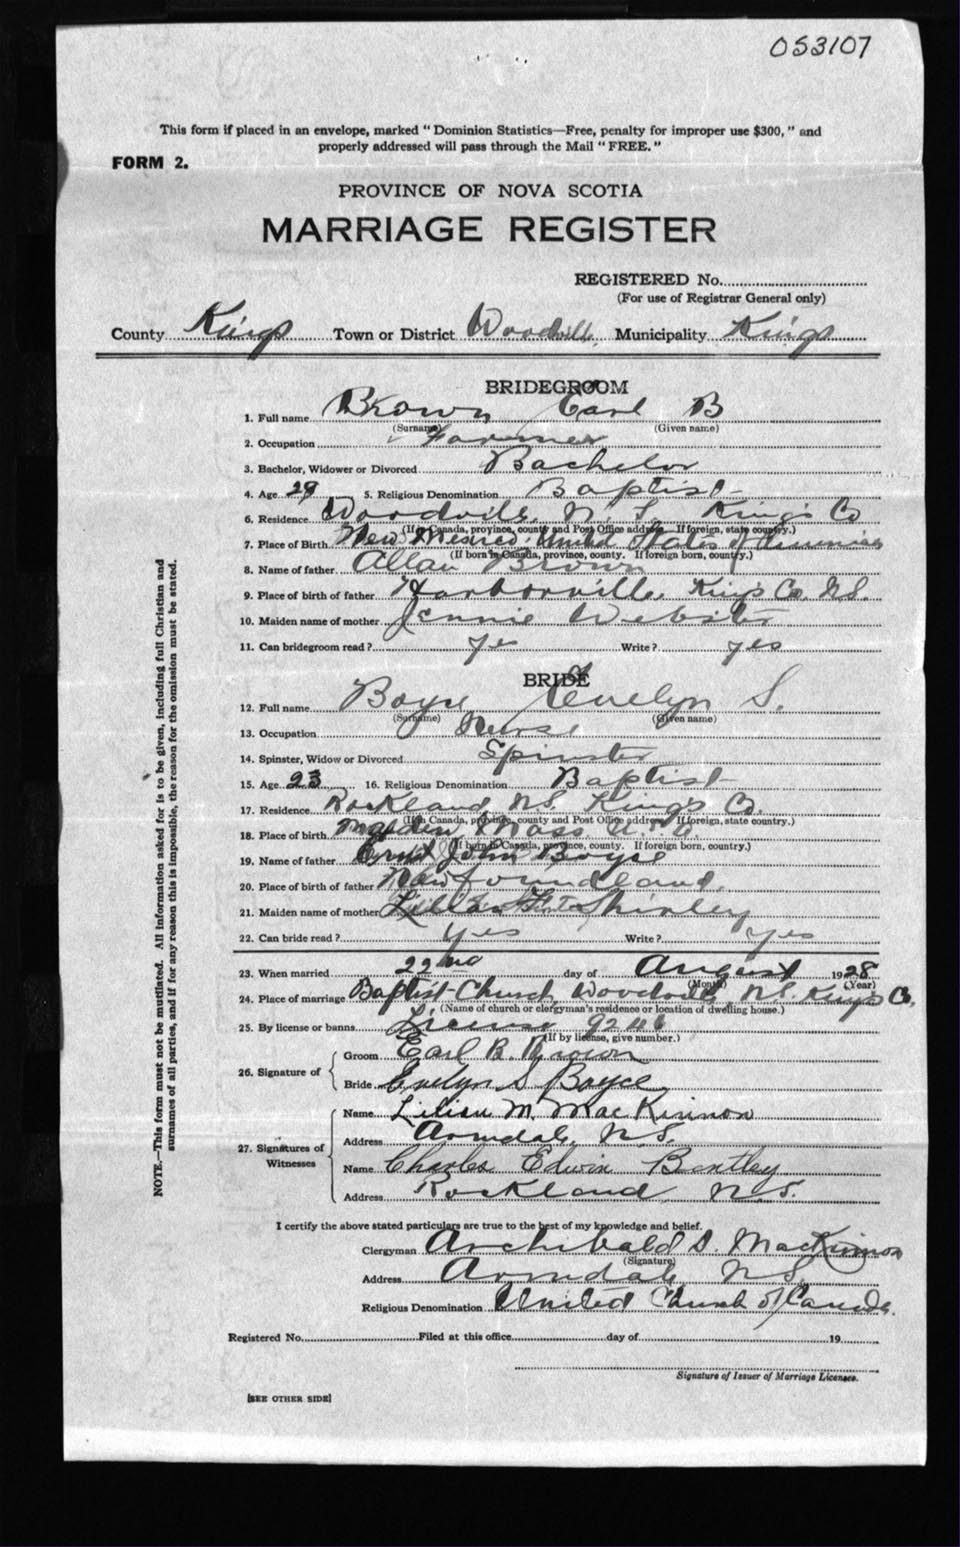 053107
This form if placed in an envelope, marked "Dominion Statistics—Free, penalty for improper use $300," and
properly addressed will pass through the Mail "FREE."
FORM 2.
PROVINCE OF NOVA SCOTIA
MARRIAGE REGISTER
REGISTERED No.
(For use of Registrar General only)
County Kings Town or District Woodville Municipality Kings
BRIDEGROOM
1. Full name Brown Earl B
(Surname) (Given name)
2. Occupation Farmer
3. Bachelor, Widower or Divorced Bachelor
4. Age 29 5. Religious Denomination Baptist
6. Residence Woodville, N. S. King's Co
(If in Canada, province, county and Post Office address. If foreign, state country.)
7. Place of Birth New Mexico. United States of America
(If born in Canada, province, county. If foreign born, country.)
8. Name of father Allan Brown
9. Place of birth of father Harborville King's Co. N.S.
10. Maiden name of mother Jennie Webster
11. Can bridegroom read? yes Write? yes
BRIDE
12. Full name Boyce Evelyn S.
(Surname) (Given name)
13. Occupation Nurse
14. Spinster, Widow or Divorced Spinster
15. Age 23 16. Religious Denomination Baptist
17. Residence Rockland N.S. King's Co.
(If in Canada, province, county and Post Office address. If foreign, state country.)
18. Place of birth Malden Mass U.S.
(If born in Canada, province, county. If foreign born, country.)
19. Name of father Ernest John Boyce
20. Place of birth of father Newfoundland.
21. Maiden name of mother Lillian Shirley
22. Can bride read? yes Write? yes
23. When married 22nd day of August 1928
(Month) (Year)
24. Place of marriage Baptist Church, Woodville N.S. King's Co.
(Name of church or clergyman's residence or location of dwelling house.)
25. By license or banns License 9246
(If by license, give number.)
26. Signature of Groom Earl B. Brown
Bride Evelyn S Boyce
27. Signatures of Witnesses Name Lilian M. MacKinnon
Address Armdale, N.S.
Name Charles Edwin Bentley
Address Rockland N.S.
I certify the above stated particulars are true to the best of my knowledge and belief.
Clergyman Archibald D. MacKinnon
(Signature)
Address Armdale N.S.
Religious Denomination United Church of Canada.
Registered No. Filed at this office day of 19
Signature of Issuer of Marriage Licenses.
[SEE OTHER SIDE]
NOTE.—This form must not be mutilated. All information asked for is to be given, including full Christian and
surnames of all parties, and if for any reason this is impossible, the reason for the omission must be stated.